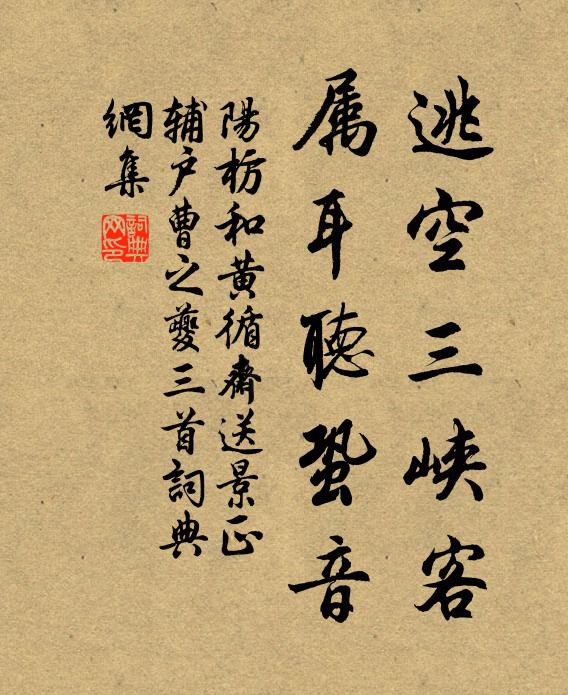 逃空三峡客
属耳聴蛩音
陽枋和黄循齋送景正
辅户曹之夔三首詞典
網集
詞典网印